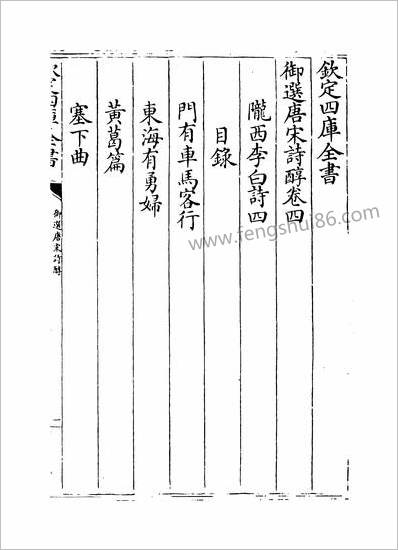 欽定四庫全書
御選唐宋詩醇卷四
隴西李白詩四
目錄
門有車馬客行
東海有勇婦
黃葛篇
塞下曲
欽定四庫全書
御選唐宋詩醇
一
www.fengshui86.com